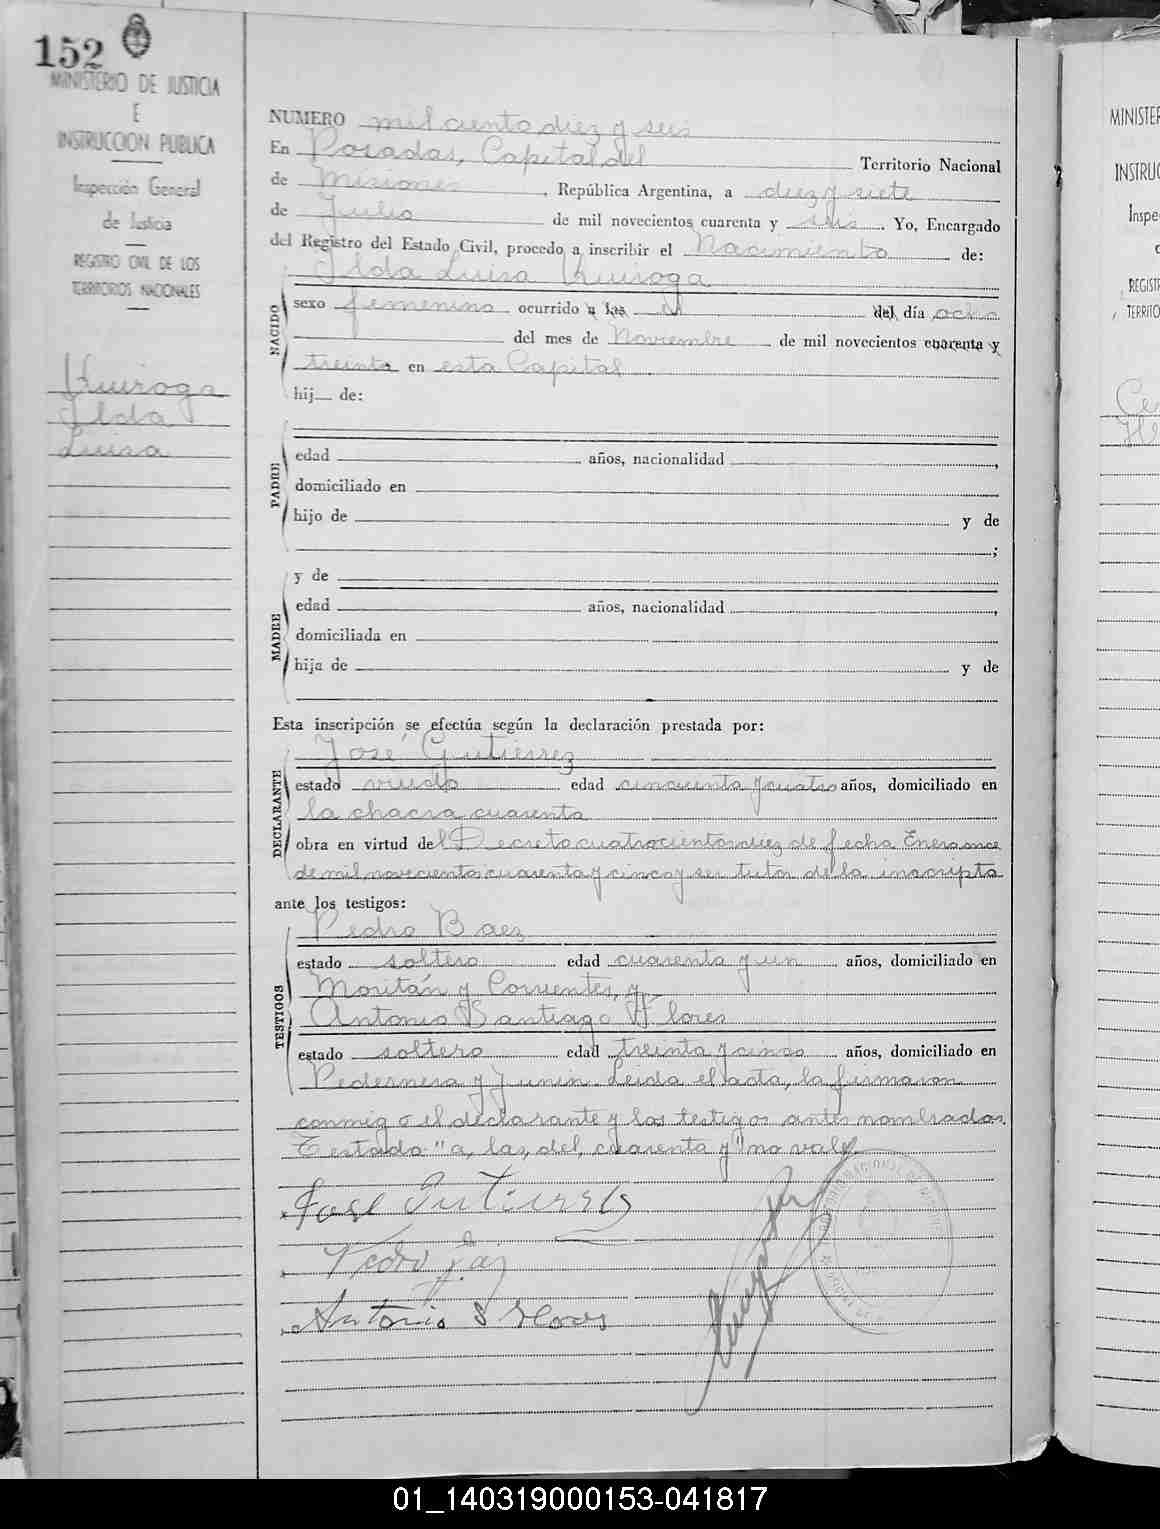 152
MINISTERIO DE JUSTICIA
E
INSTRUCCION PUBLICA
Inspección General
de Justicia
REGISTRO CIVIL DE LOS
TERRITORIOS NACIONALES
Kuiroga
Ilda
Luisa
NUMERO mil ciento diez y seis
En Posadas, Capital del Territorio Nacional
de Misiones, República Argentina, a diez y siete
de Julio de mil novecientos cuarenta y seis. Yo, Encargado
del Registro del Estado Civil, procedo a inscribir el Nacimiento de:
Ilda Luisa Kuiroga
NACIDO
sexo femenino ocurrido a las el del día ocho
del mes de Noviembre de mil novecientos cuarenta y
treinta en esta Capital
hij de:
PADRE
edad años, nacionalidad ,
domiciliado en
hijo de y de
;
MADRE
y de
edad años, nacionalidad ,
domiciliada en
hija de y de
Esta inscripción se efectúa según la declaración prestada por:
José Gutierrez
DECLARANTE
estado viudo edad cincuenta y cuatro años, domiciliado en
la chacra cuarenta
obra en virtud del Decreto cuatrocientos diez de fecha Enero once
de mil novecientos cuarenta y cinco y ser tutor de la inscripta
ante los testigos:
Pedro Baez
TESTIGOS
estado soltero edad cuarenta y un años, domiciliado en
Moritán y Corrientes, y
Antonio Santiago Flores
estado soltero edad treinta y cinco años, domiciliado en
Pedernera y Junin. Leida el acta, la firmaron
conmigo el declarante y los testigos antes nombrados.
Testado "a, las, del, cuarenta y" no vale
José Gutierrez
Pedro Baez
Antonio S Flores
MINISTER
INSTRUC
Inspe
REGISTR
TERRITO
01_140319000153-041817